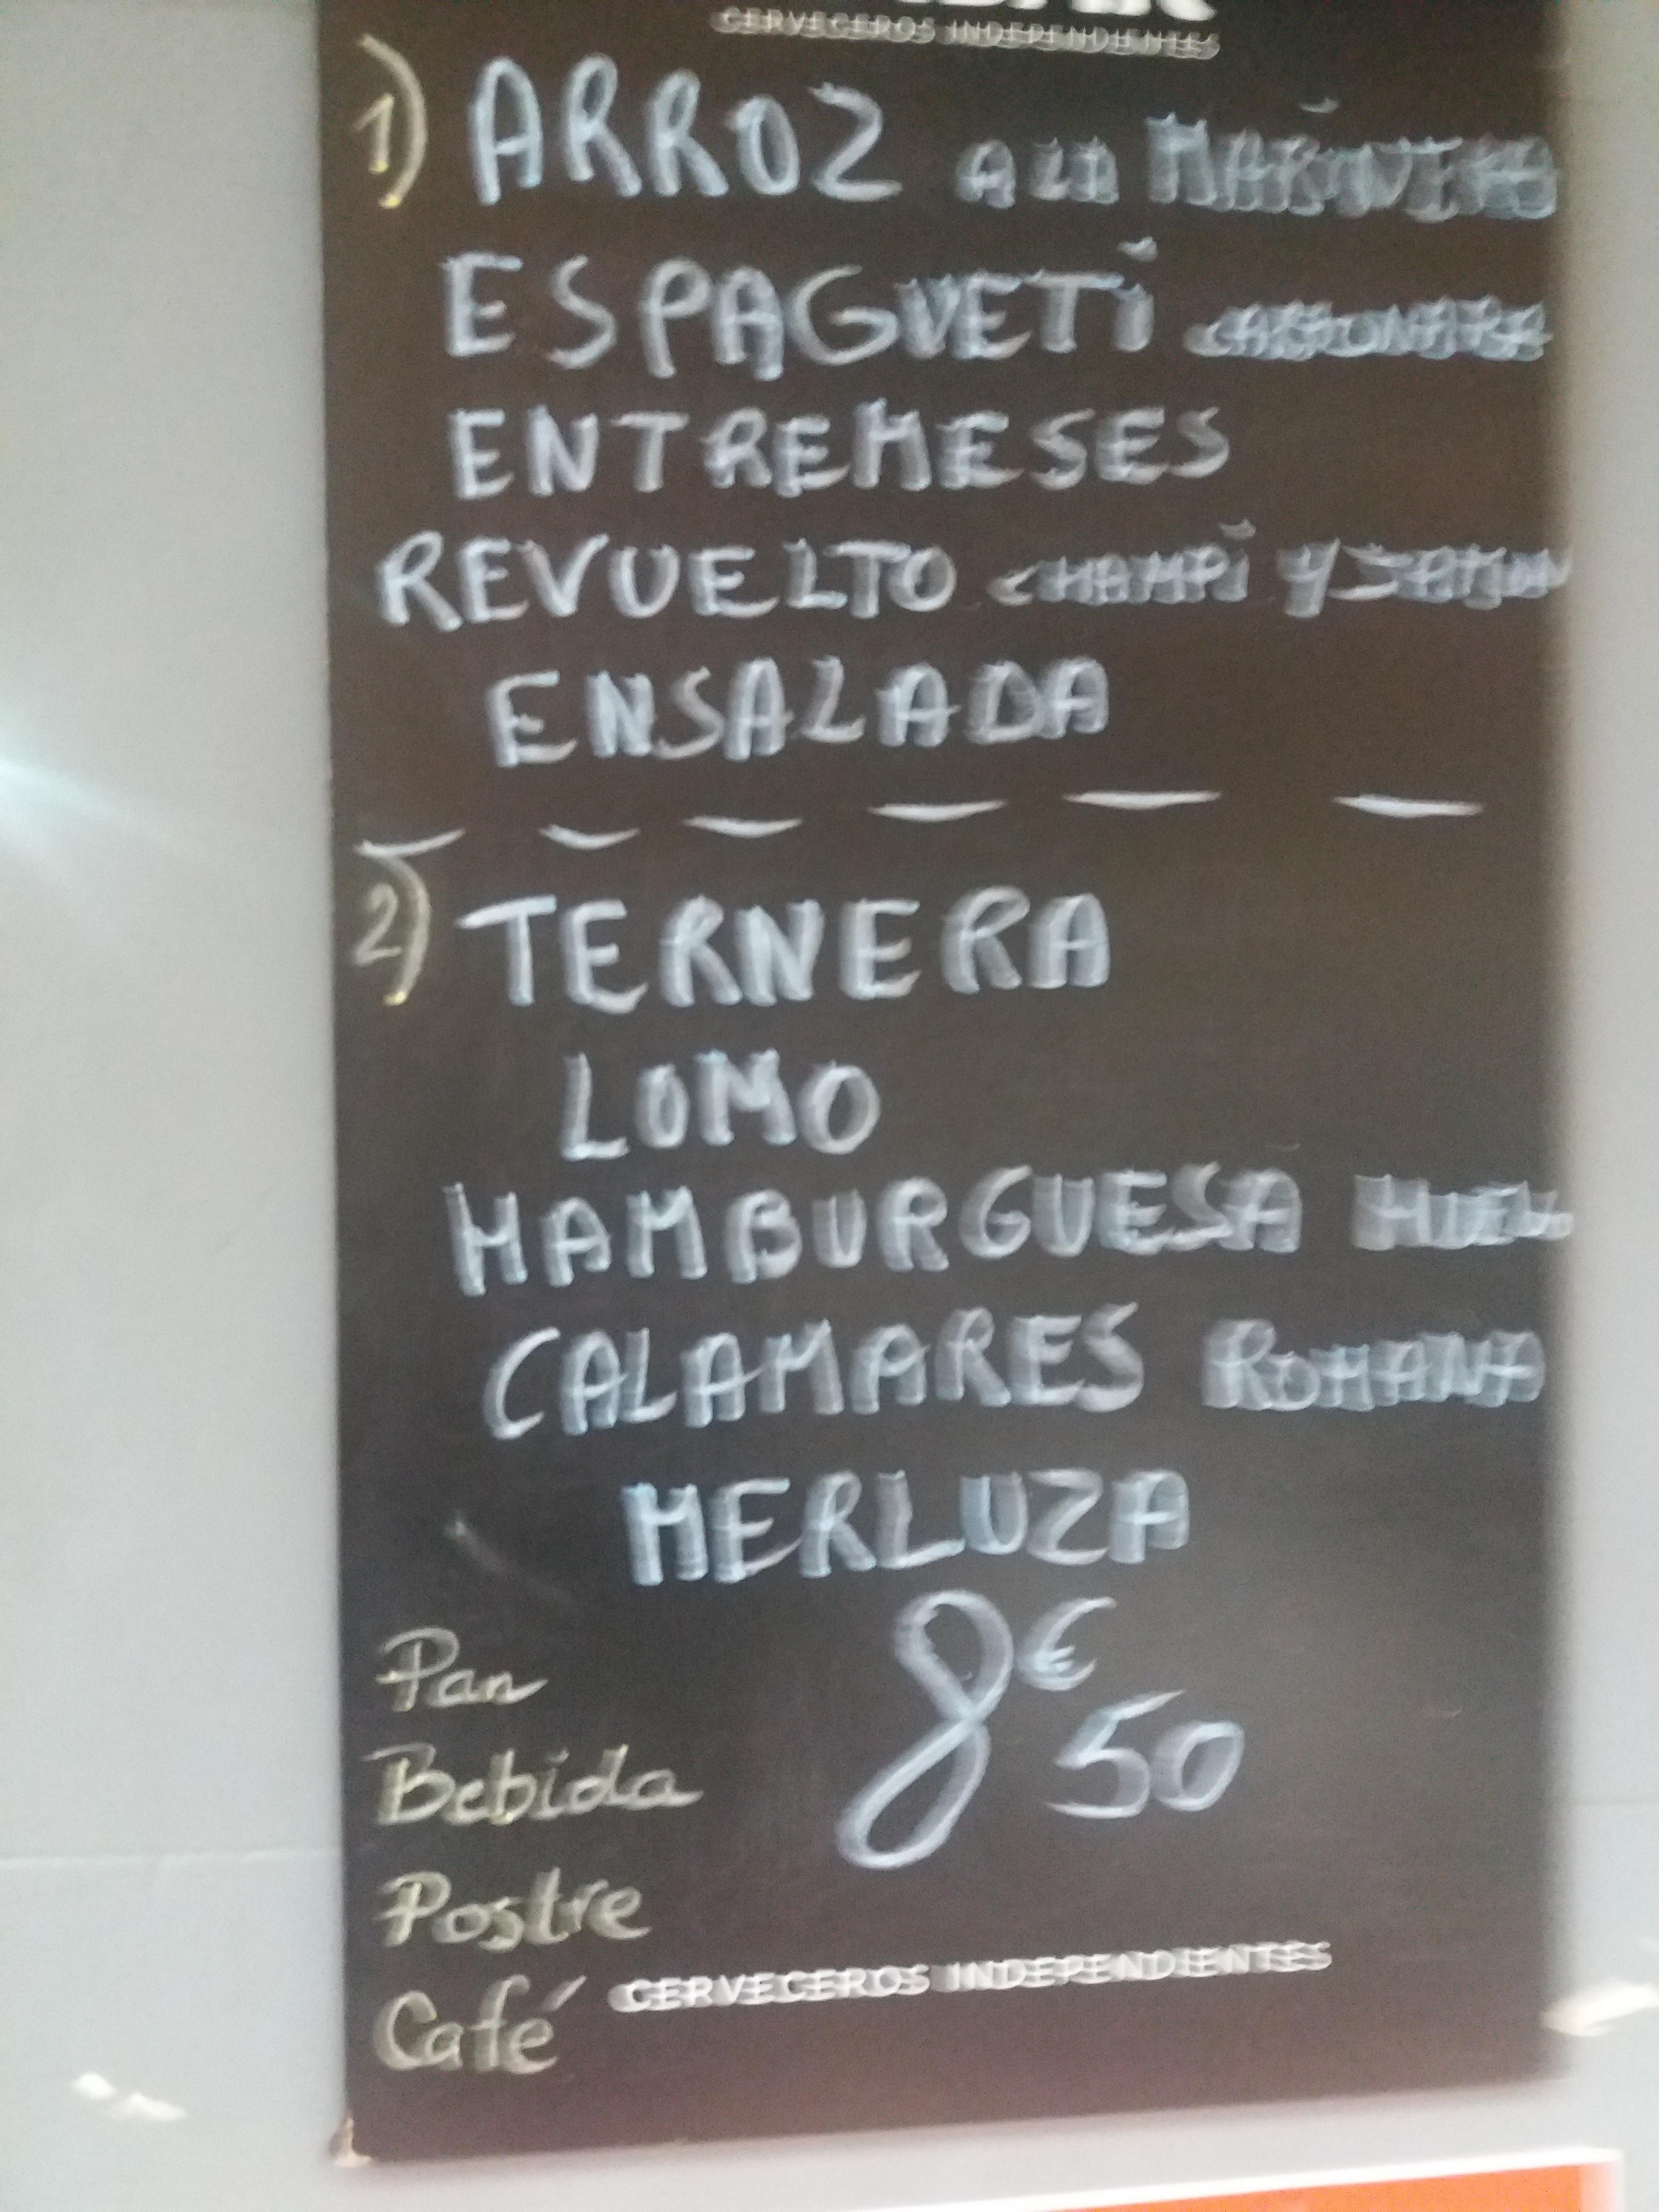 CERVECEROS INDEPENDIENTES
1) ARROZ A LA MARINERA
ESPAGUETI CARBONARA
ENTREMESES
REVUELTO CHAMPI Y JAMON
ENSALADA
2) TERNERA
LOMO
HAMBURGUESA HUEVO
CALAMARES ROMANA
MERLUZA
8€50
Pan
Bebida
Postre
Café
CERVECEROS INDEPENDIENTES